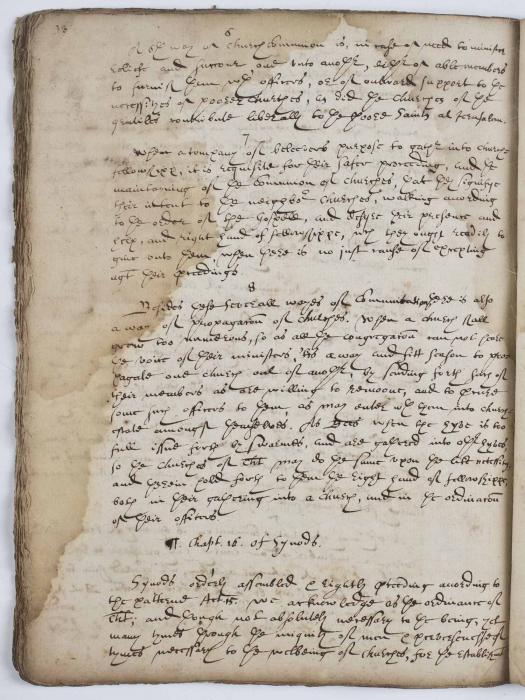 6
A 6th way of Church communion is, in case of need to minister
reliefe and succour one vnto anothr, eithr of able members
to furnish them wth officers, or of outward support to the
necessities of poorer churches; as did the churches of the
gentiles contribute liberally to the poore saints at Jerusalem.
7
When a company of beleevers purpose to gathr into church
fellowshipp, it is requisite for their safer proceeding, and the
maintaining of the communion of churches, that they signifye
their intent to the neighbor churches, walking according
to the order of the Gospell, and desyre their presence and
help, and right hand of fellowshippe, wch they ought readily to
giue vnto them, when there is no just cause of excepting
agt their proceedings.
8
Besides these severall wayes of Communion, there is also
a way of propagation of churches. When a church shall
grow too numerous, so as all the congregation can not heare
the voice of their ministers, 'tis a way and fitt season to pro-
pagate one church out of anothr, by sending forth such of
their members as are willing to remoove, and to procure
some such officers to them, as may enter wth them into church-
estate amongst themselves. As Bees when the hyve is too
full issue forth by swarmes, and are gathered into othr hyves
so the churches of Cht may do the same vpon the like necessity,
and therein hold forth to them the right hand of fellowshippe,
both in their gathering into a church, and in the ordination
of their officers
¶. Chapt. 16. of Synods.
Synods orderly assembled & rightly proceeding according to
the patterne Act. 15. we acknowledge as the ordinance of
Cht; and though not absolutely necessary to the being, yet
many tymes through the iniquity of men & perversenes of
tymes necessary to the welbeing of churches, for the establishmt